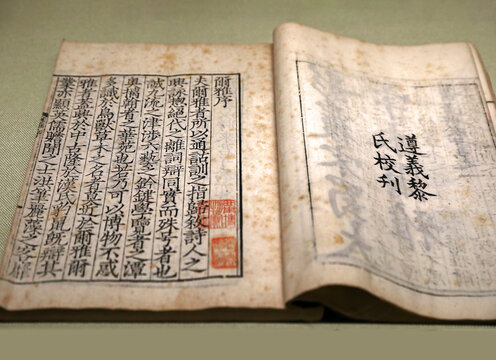 遵義黎
氏校刊
爾雅序
夫爾雅者所以通詁訓之指歸敘詩人之
興詠揔絕代之離詞辯同實而殊號者也
誠九流之津涉六藝之鈐鍵學覽者之潭
奧摛翰者之華苑也若乃可以博物不惑
多識於鳥獸草木之名者莫近於爾雅爾
雅者蓋興於中古隆於漢氏豹鼠既辯其
業亦顯英儒贍聞之士洪筆麗藻之客靡